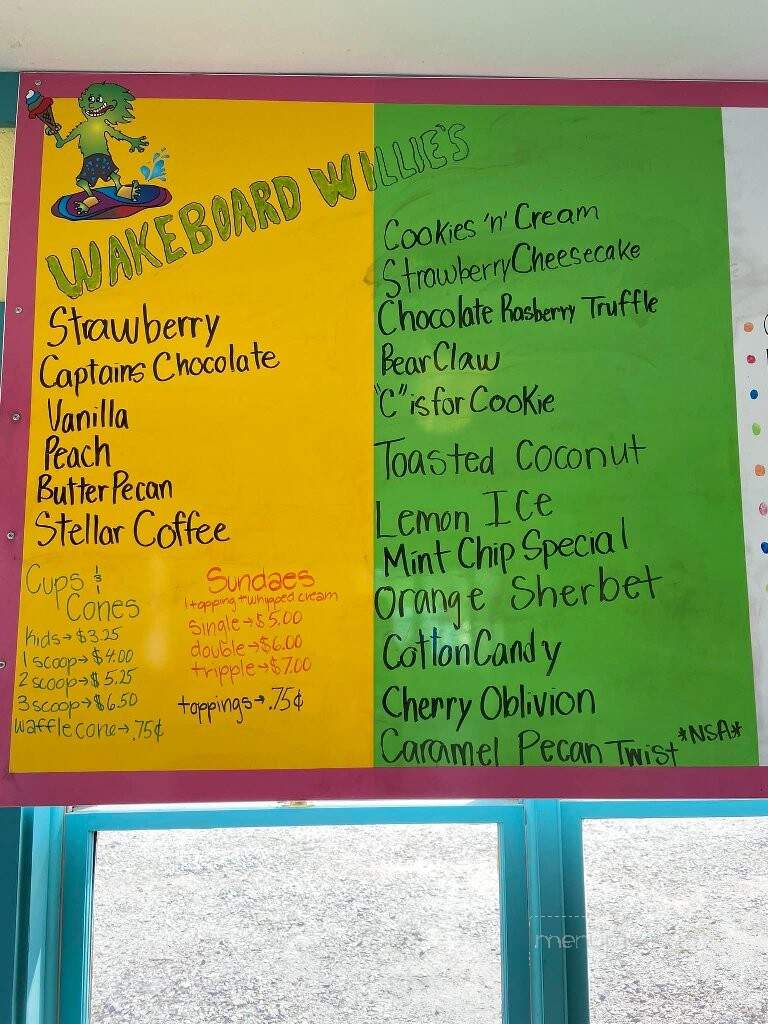 WAKEBOARD WILLIE'S
Strawberry
Captains Chocolate
Vanilla
Peach
Butter Pecan
Stellar Coffee
Cups &
Cones
kids→$3.25
1 scoop→$4.00
2 scoop→$5.25
3 scoop→$6.50
waffle cone→.75¢
Sundaes
1 topping + whipped cream
single→$5.00
double→$6.00
tripple→$7.00
toppings→.75¢
Cookies 'n' Cream
Strawberry Cheesecake
Chocolate Rasberry Truffle
Bear Claw
"C" is for Cookie
Toasted Coconut
Lemon Ice
Mint Chip Special
Orange Sherbet
Cotton Candy
Cherry Oblivion
Caramel Pecan Twist *NSA*